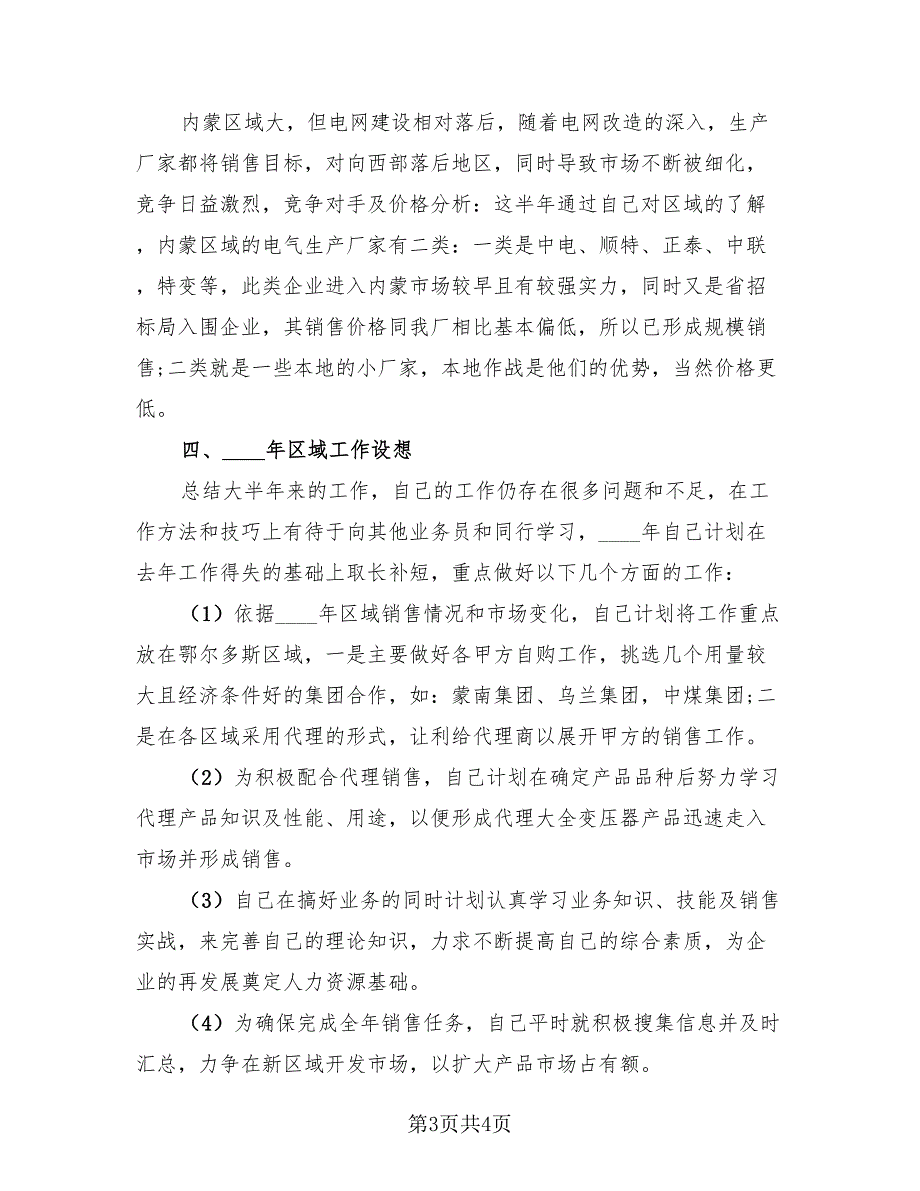 内蒙区域大，但电网建设相对落后，随着电网改造的深入，生产
厂家都将销售目标，对向西部落后地区，同时导致市场不断被细化，
竞争日益激烈，竞争对手及价格分析：这半年通过自己对区域的了解
，内蒙区域的电气生产厂家有二类：一类是中电、顺特、正泰、中联
，特变等，此类企业进入内蒙市场较早且有较强实力，同时又是省招
标局入围企业，其销售价格同我厂相比基本偏低，所以已形成规模销
售;二类就是一些本地的小厂家，本地作战是他们的优势，当然价格更
低。
四、____年区域工作设想
总结大半年来的工作，自己的工作仍存在很多问题和不足，在工
作方法和技巧上有待于向其他业务员和同行学习，____年自己计划在
去年工作得失的基础上取长补短，重点做好以下几个方面的工作：
（1）依据____年区域销售情况和市场变化，自己计划将工作重点
放在鄂尔多斯区域，一是主要做好各甲方自购工作，挑选几个用量较
大且经济条件好的集团合作，如：蒙南集团、乌兰集团，中煤集团;二
是在各区域采用代理的形式，让利给代理商以展开甲方的销售工作。
（2）为积极配合代理销售，自己计划在确定产品品种后努力学习
代理产品知识及性能、用途，以便形成代理大全变压器产品迅速走入
市场并形成销售。
（3）自己在搞好业务的同时计划认真学习业务知识、技能及销售
实战，来完善自己的理论知识，力求不断提高自己的综合素质，为企
业的再发展奠定人力资源基础。
（4）为确保完成全年销售任务，自己平时就积极搜集信息并及时
汇总，力争在新区域开发市场，以扩大产品市场占有额。
第3页共4页